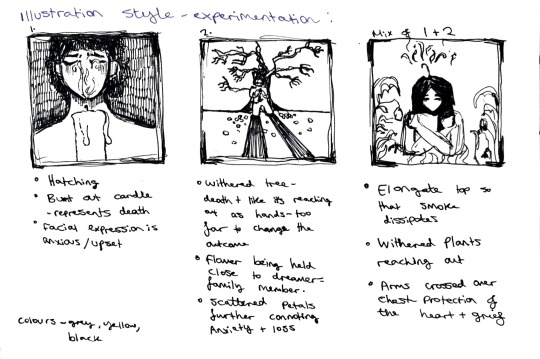 Illustration Style - experimentation :
1.
• Hatching
• Burnt out candle
- represents death
• Facial expression is
anxious / upset
colours - grey, yellow,
black
2.
• Withered tree -
death + like its reaching
out as hands - too
far to change the
outcome
• Flower being held
close to dreamer =
family member.
• Scattered Petals
further connoting
Anxiety + loss
Mix of 1 + 2
• Elongate top so
that smoke
dissipates
• Withered Plants
reaching out
• Arms crossed over
chest - Protection of
the heart + grief